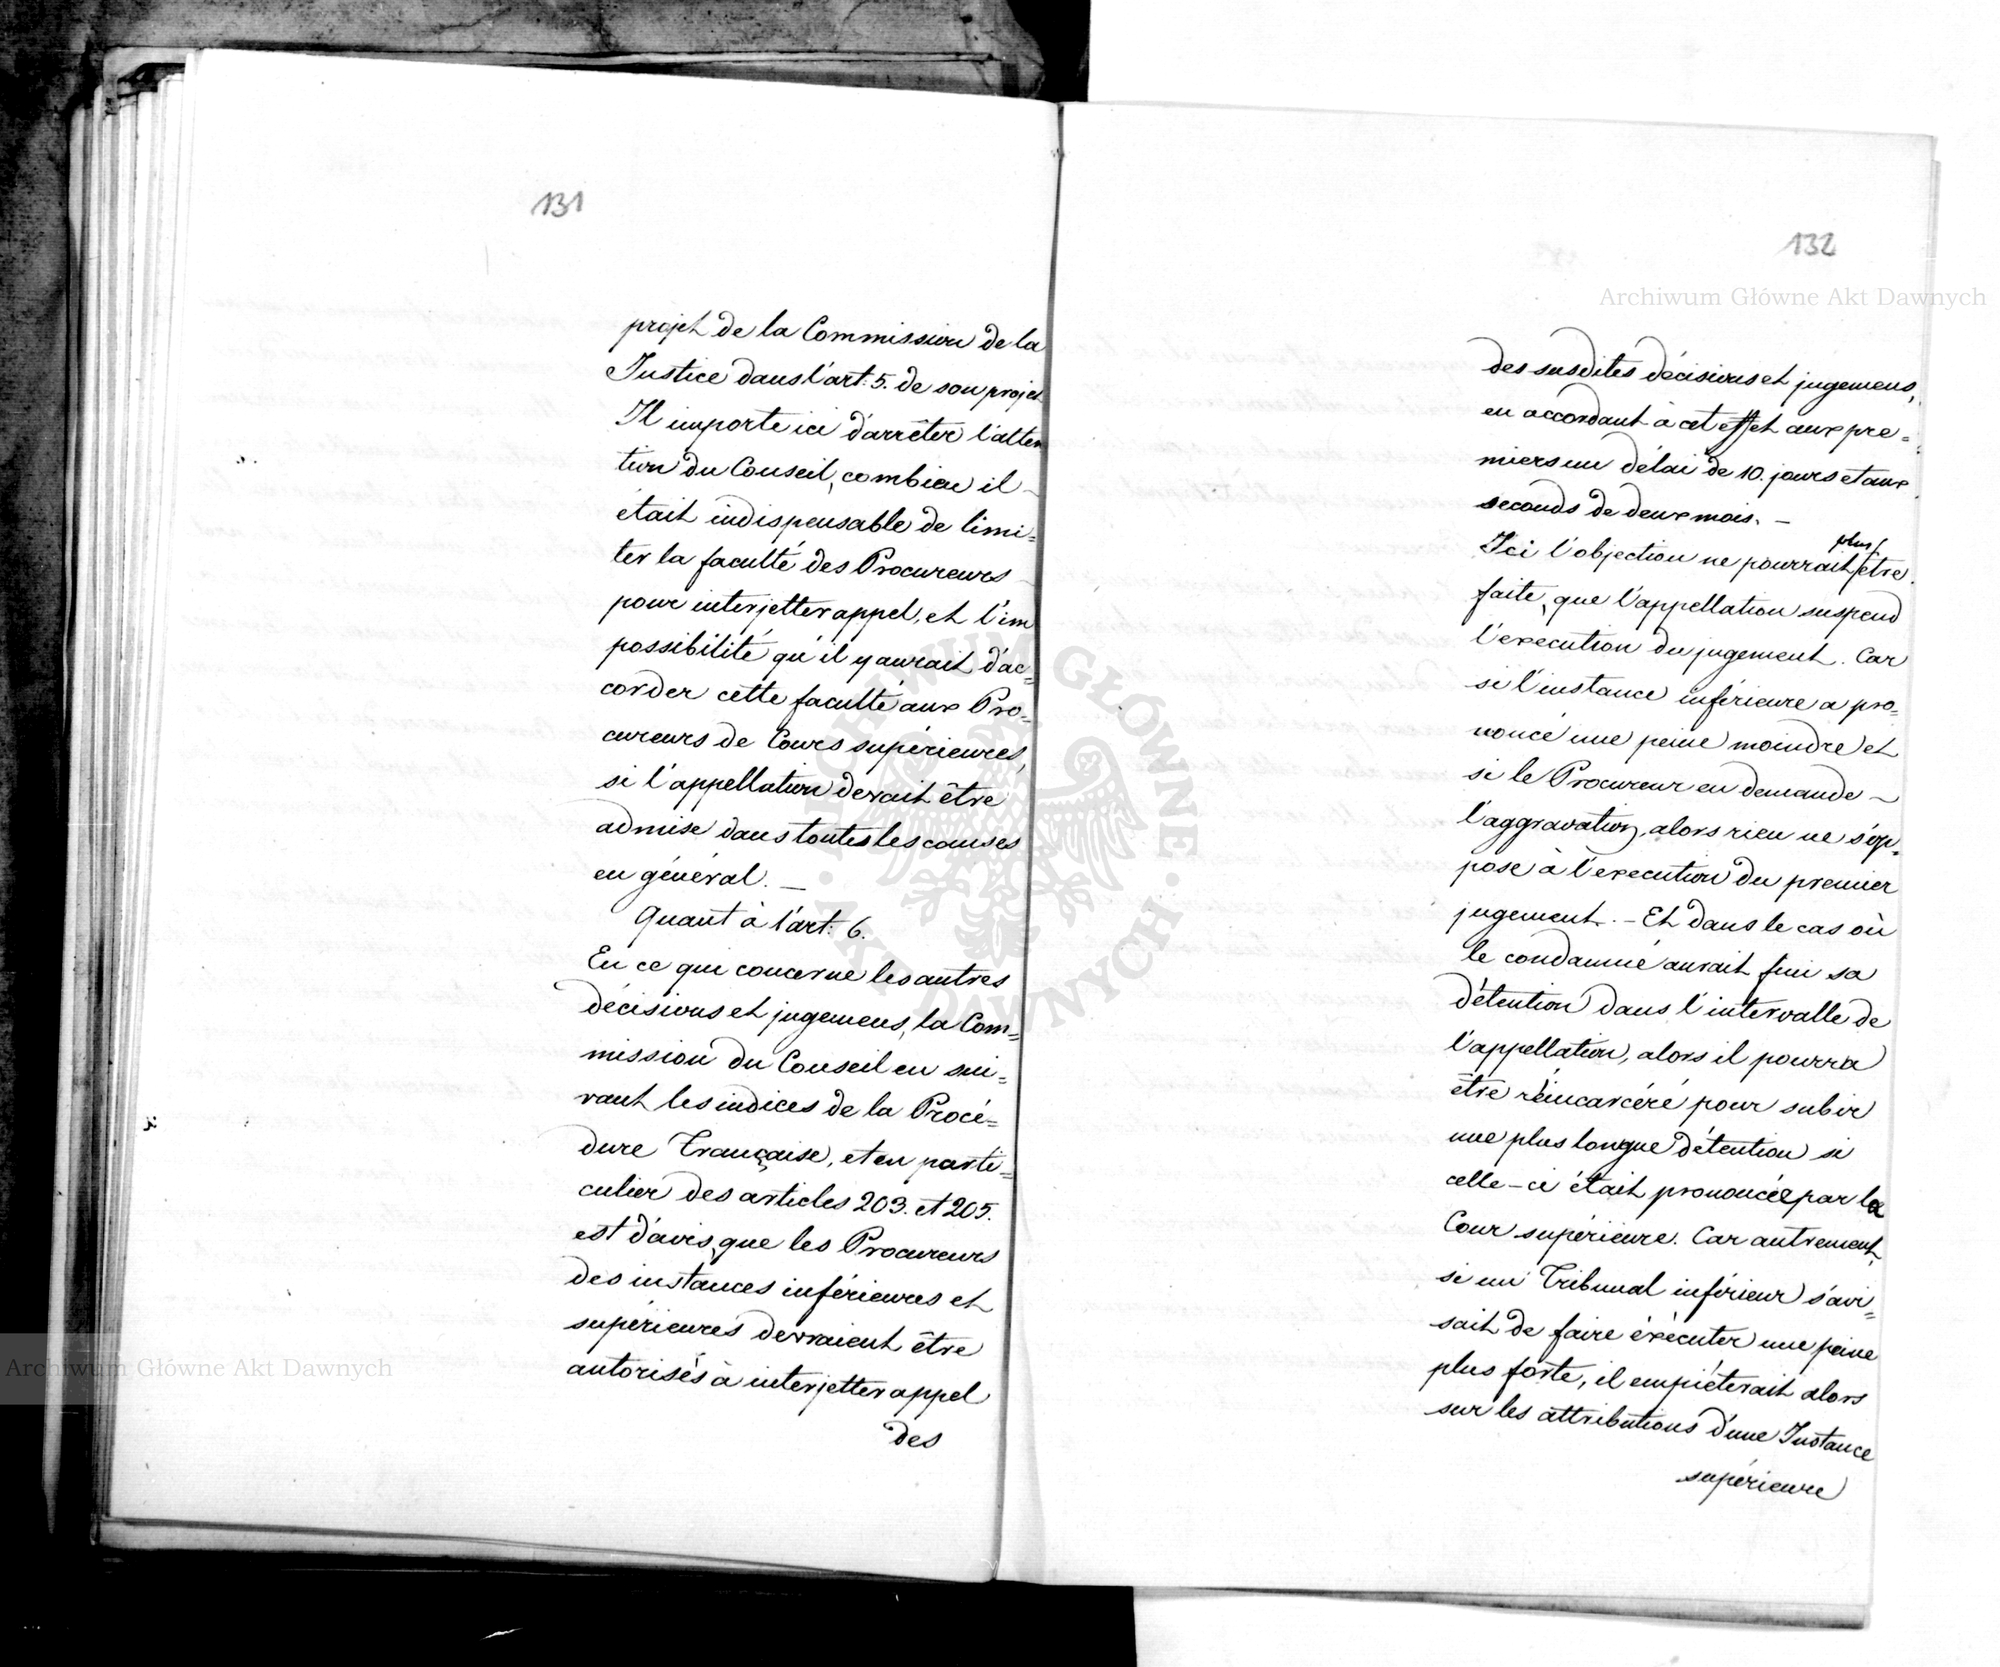 131
projet de la Commission de la
Justice dans l'art: 5. de son projet
Il importe ici d'arrêter l'atten
tion du Conseil, combien il
était indispensable de limi=
ter la faculté des Procureurs
pour interjetter appel, et l'im
possibilité qu'il y aurait d'ac=
corder cette faculté aux Pro=
cureurs de Cours supérieures,
si l'appellation devait être
admise dans toutes les causes
en général. —
Quant à l'art: 6.
En ce qui concerne les autres
décisions et jugemens, la Com=
mission du Conseil en sui=
vant les indices de la Procé=
dure Française, et en parti=
culier des articles 203. et 205.
est d'avis, que les Procureurs
des instances inférieures et
supérieures devraient être
autorisés à interjetter appel
des
132
Archiwum Główne Akt Dawnych
des susdites décisions et jugemens,
en accordant à cet effet aux pre=
miers un délai de 10. jours et aux
seconds de deux mois. —
plus
Ici l'objection ne pourrait être
faite, que l'appellation suspend
l'execution du jugement. Car
si l'instance inférieure a pro=
noncé une peine moindre et
si le Procureur en demande —
l'aggravation, alors rien ne s'op=
pose à l'execution du premier
jugement. — Et dans le cas où
le condamné aurait fini sa
détention dans l'intervalle de
l'appellation, alors il pourra
être réincarcéré pour subir
une plus longue détention si
celle-ci était prononcée par la
Cour supérieure. Car autrement,
si un Tribunal inférieur s'avi=
sait de faire éxécuter une peine
plus forte, il empiéterait alors
sur les attributions d'une Instance
supérieure
Archiwum Główne Akt Dawnych
ARCHIWUM GŁÓWNE · AKT DAWNYCH ·